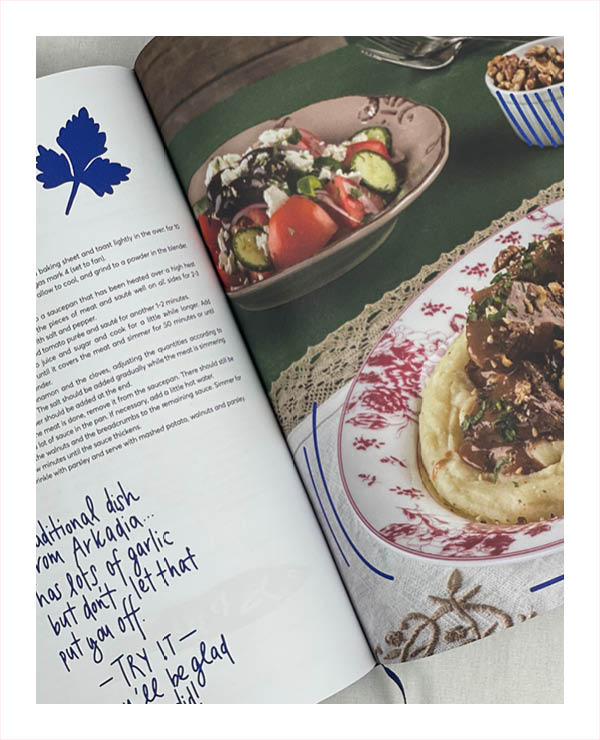 baking sheet and toast lightly in the oven, for 10
gas mark 4 (set to fan).
allow to cool, and grind to a powder in the blender.
a saucepan that has been heated over a high heat
the pieces of meat and sauté well on all sides for 2-3
with salt and pepper.
tomato purée and sauté for another 1-2 minutes.
juice and sugar and cook for a little while longer. Add
until it covers the meat and simmer for 50 minutes or until
and the cloves, adjusting the quantities according to
The salt should be added gradually while the meat is simmering
should be added at the end.
meat is done, remove it from the saucepan. There should still be
lot of sauce in the pan. If necessary, add a little hot water.
the walnuts and the breadcrumbs to the remaining sauce. Simmer for
minutes until the sauce thickens.
with parsley and serve with mashed potato, walnuts and parsley.
dish
Arkadia...
has lots of garlic
but don't let that
put you off.
—TRY IT—
be glad